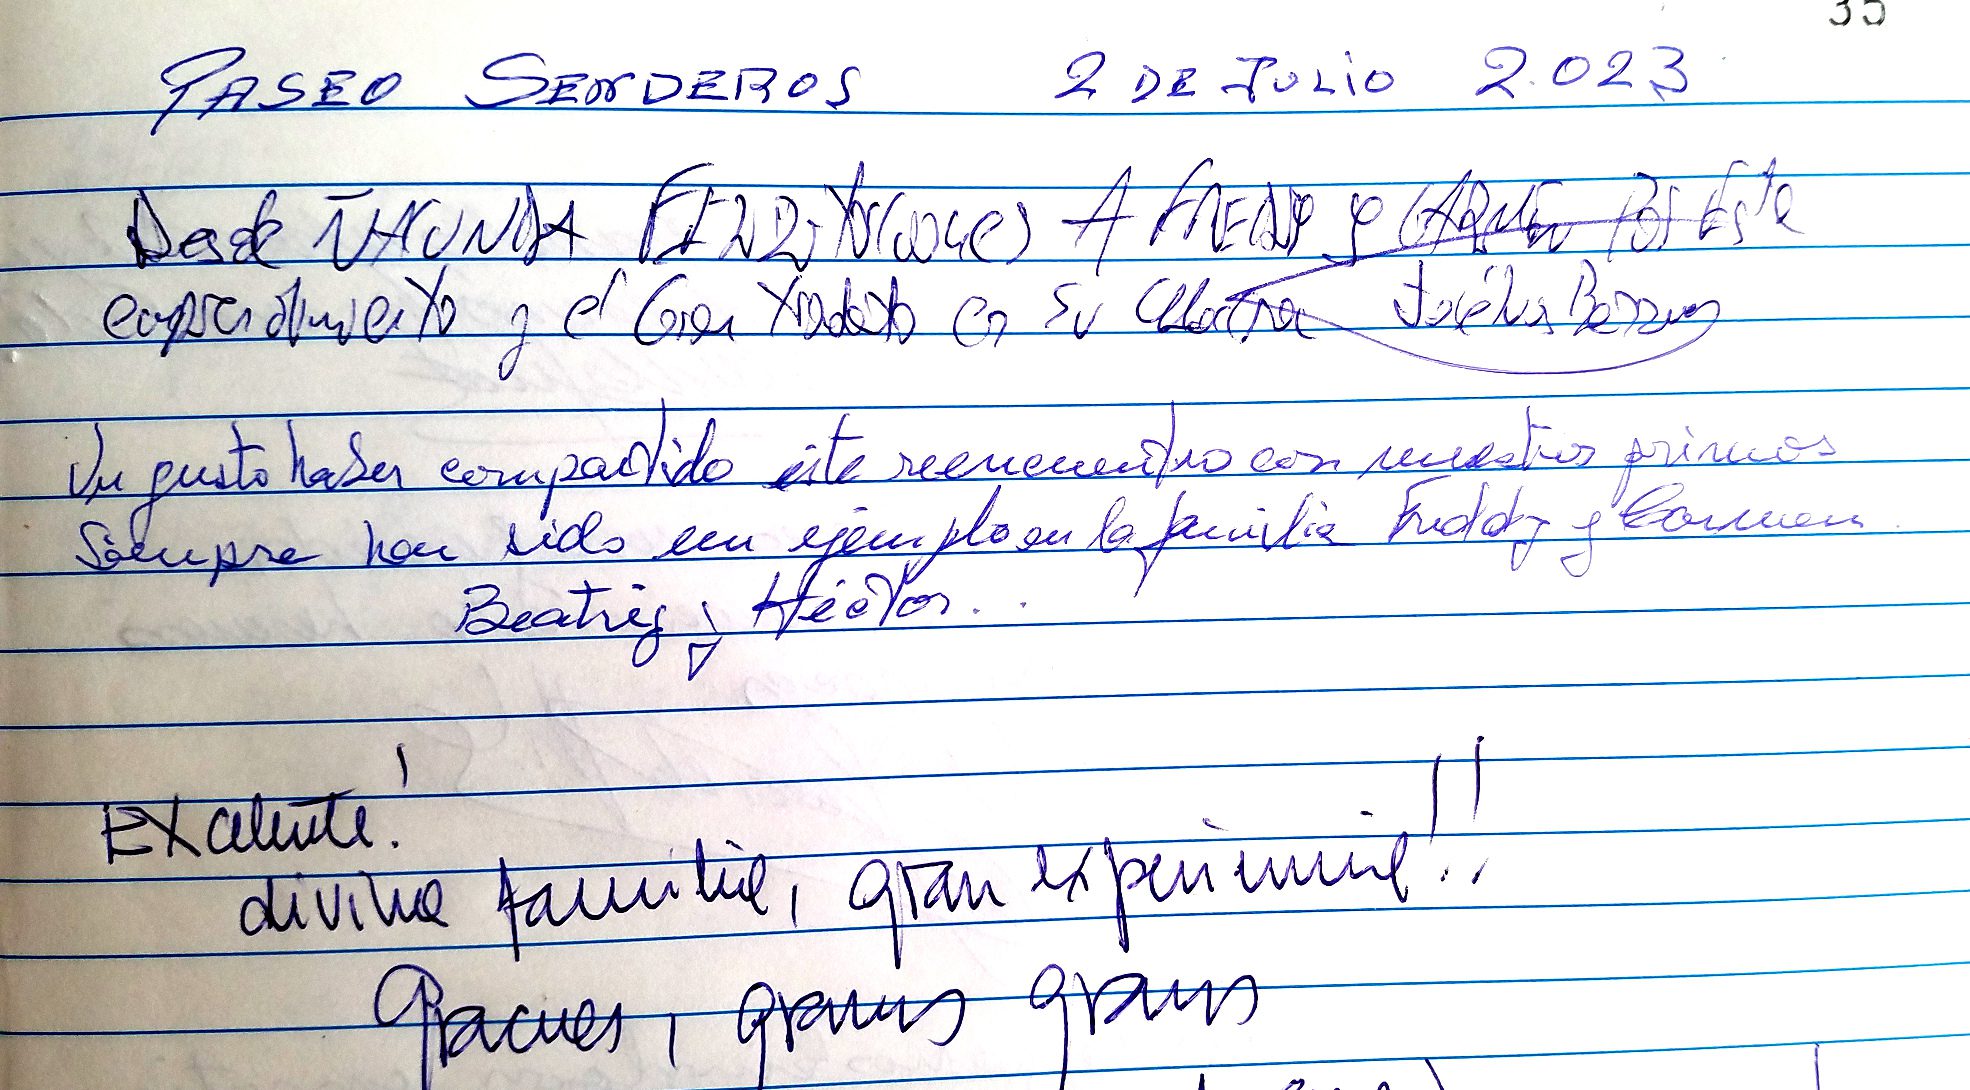 35
PASEO SENDEROS 2 DE JULIO 2.023
Desde ÑACUNDA FELIZITACIONES A FREDY y CARMEN POR Este
emprendimiento y el Gran tratado en su
Un gusto haber compartido este reencuentro con nuestros primos
Siempre han sido un ejemplo en la familia Freddy y Carmen.
Beatriz y Héctor...
Excelente!
divina familia, gran experiencia!!
Gracias, gracias gracias